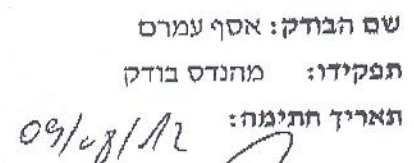 שם הבודק: אסף עמרם
תפקידו: מהנדס בודק
תאריך חתימה: 09/08/12